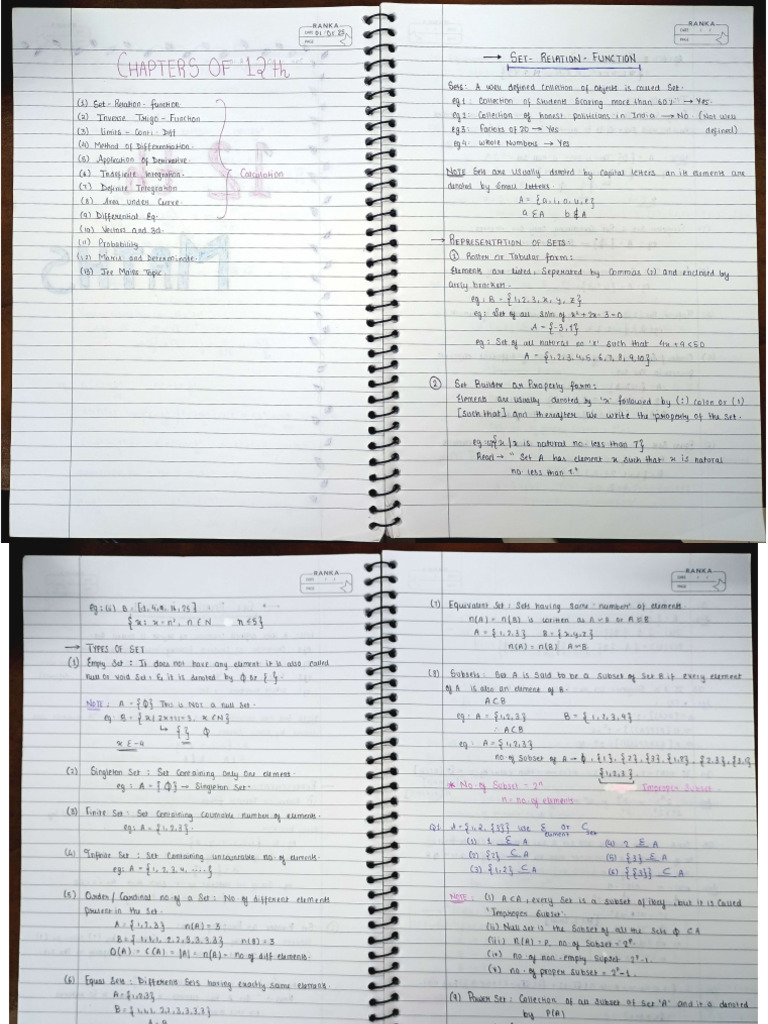 RANKA
DATE 01/01/25
PAGE
CHAPTERS OF 12th
(1) Set-Relation-function
(2) Inverse Trigo-Function
(3) Limits - Conti- Diff
(4) Method of Differentiation.
(5) Application of Derivative.
(6) Indefinite Integration.
(7) Definite Integration
(8) Area under Curve.
(9) Differential Eq.
Calculation
(10) Vector and 3d.
(11) Probability
(12) Matrix and Determinate.
(13) Jee Mains Topic.
RANKA
DATE / /
PAGE
→ SET-RELATION-FUNCTION
Sets: A well defined collection of objects is called Set.
eg1: Collection of students scoring more than 60% → Yes.
eg2: Collection of honest politicians in India → No (Not well
defined)
eg3: Factors of 20 → Yes
eg4: Whole Numbers → Yes
NOTE Sets are usually denoted by capital letters an its elements are
denoted by small letters.
A = {a, i, o, u, e}
a ∈ A b ∉ A
→ REPRESENTATION OF SETS:
① Roster or Tabular form:
Elements are listed, Seperated by Commas (,) and enclosed by
curly brackets.
eg: B = {1, 2, 3, x, y, z}
eg: Set of all soln of x²+2x-3=0
A = {-3, 1}
eg: Set of all natural no 'x' such that 4x+9<50
A = {1, 2, 3, 4, 5, 6, 7, 8, 9, 10}
② Set Builder or Property form:
Elements are usually denoted by 'x' followed by (:) colon or (|)
[such that] and thereafter we write the property of the set.
{x | x is natural no. less than 7}
Read → " Set A has element x such that x is natural
no. less than 7."
RANKA
DATE / /
PAGE
eg:(ii) B = {1, 4, 9, 16, 25}
{x: x = n², n ∈ N n ≤ 5}
→ TYPES OF SET
(1) Empty Set: It does not have any element it is also called
null or void Set, & it is denoted by ϕ or { }.
NOTE: A = {ϕ} This is NOT a null set.
eg: B = {x | 2x+11=3, x ∈ N}
↳ { } ϕ
x = -4
(2) Singleton Set: Set containing only one element.
eg: A = {ϕ} → Singleton Set.
(3) Finite Set: Set containing countable number of elements.
eg: A = {1, 2, 3}.
(4) Infinite Set: Set containing uncountable no. of elements.
eg: A = {1, 2, 3, 4, ....}
(5) Order/Cardinal no. of a Set: No. of different elements
present in the Set.
A = {1, 2, 3} n(A) = 3.
B = {1, 1, 1, 2, 2, 3, 3, 3, 3} n(B) = 3
O(A) = C(A) = |A| = n(A) = no. of diff elements.
(6) Equal Sets: Different Sets having exactly same elements
A = {1, 2, 3}
RANKA
DATE / /
PAGE
(7) Equivalent Set: Sets having same 'number' of elements.
n(A) = n(B) is written as A~B or A≈B
A = {1, 2, 3} B = {x, y, z}
n(A) = n(B) A~B
(8) Subsets: Set A is said to be a subset of Set B if every element
of A is also an element of B.
A⊂B
eg: A = {1, 2, 3} B = {1, 2, 3, 4}
∴ A⊂B
eg: A = {1, 2, 3}
no of subset of A → ϕ, {1}, {2}, {3}, {1,2}, {2,3}, {3,1}
{1,2,3}
Improper Subset.
* No. of Subset = 2ⁿ
n = no. of elements
Q1 A = {1, 2, {3}} use ∈ or ⊂
element Set
(1) 1 ∈ A (4) 2 ∈ A
(2) {2} ⊂ A (5) {3} ∈ A
(3) {1,2} ⊂ A (6) {{3}} ⊂ A
NOTE: (i) A⊂A, every set is a subset of itself, but it is called
'Improper Subset'.
(ii) Null set is the subset of all the sets ϕ⊂A
(iii) n(A) = n, no. of subset = 2ⁿ.
(iv) no. of non-empty subset = 2ⁿ-1.
(v) no. of proper subset = 2ⁿ-1.
(9) Power Set: Collection of all subset of set 'A' and it is denoted
by P(A)